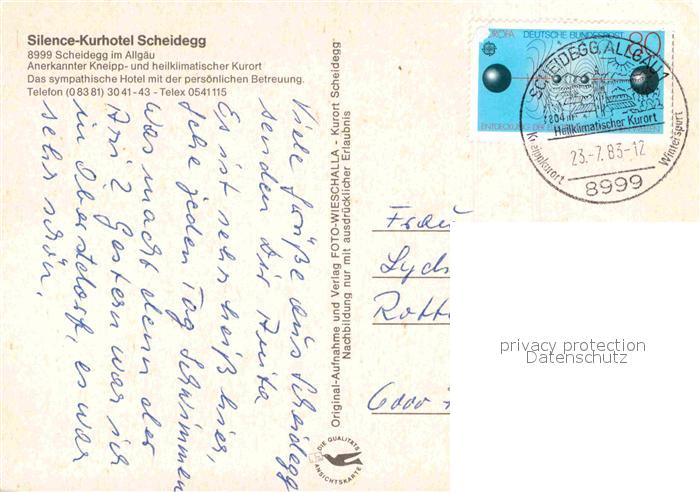 Silence-Kurhotel Scheidegg
8999 Scheidegg im Allgäu
Anerkannter Kneipp- und heilklimatischer Kurort
Das sympathische Hotel mit der persönlichen Betreuung.
Telefon (0 83 81) 30 41 - 43 - Telex 0541115
Viele Grüße aus Scheidegg
senden Dir Anita
Es ist sehr heiß hier,
gehe jeden Tag schwimmen
was macht denn der
Gestern war ich
in Oberstdorf, es war
sehr schön.
Original-Aufnahme und Verlag FOTO-WIESCHALLA - Kurort Scheidegg
Nachbildung nur mit ausdrücklicher Erlaubnis
DIE QUALITÄTS
ANSICHTSKARTE
EUROPA DEUTSCHE BUNDESPOST 80
ENTDECKUNG DER
SCHEIDEGG, ALLGÄU 1
804 m
Heilklimatischer Kurort
Kneippkurort
Wintersport
23.-7.83-12
8999
Frau
Lyd
Rott
6000
privacy protection
Datenschutz